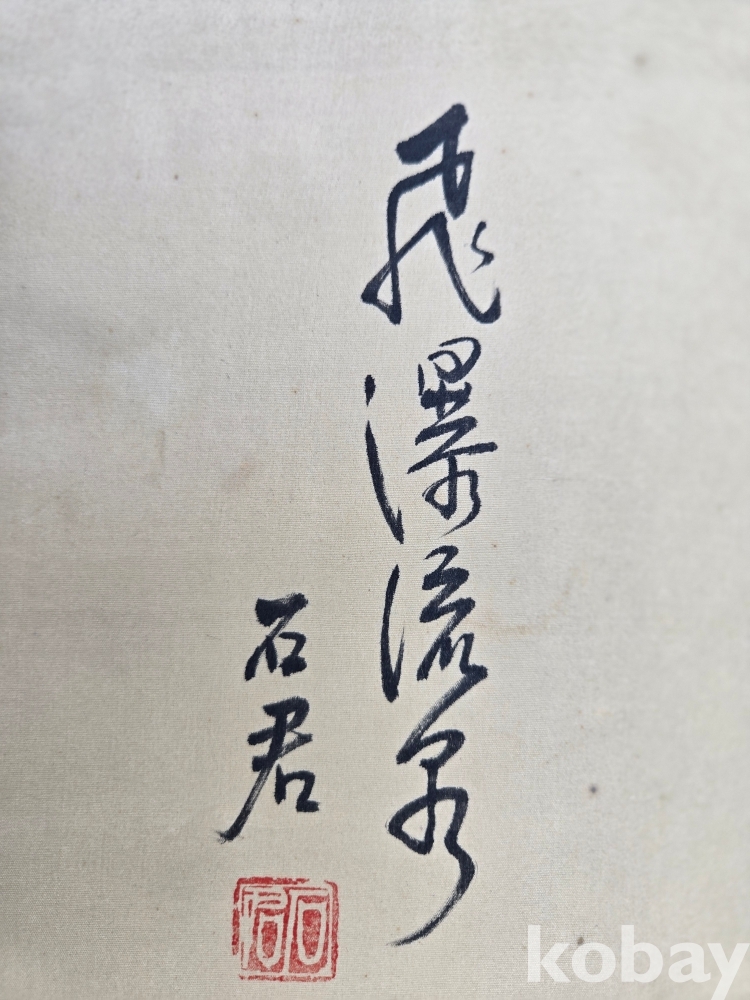 飛瀑流泉
石君
石君
kobay